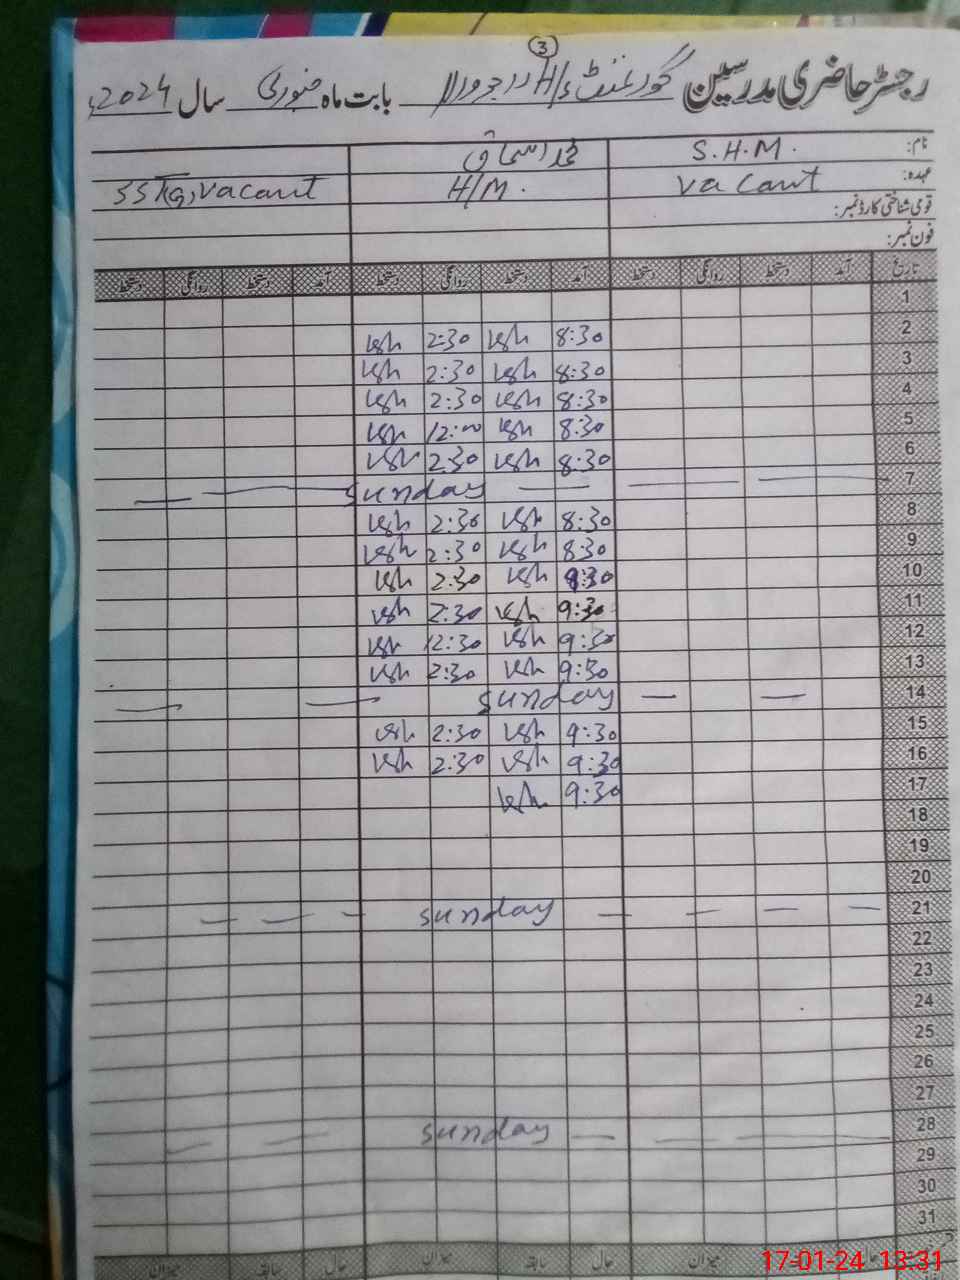 3
رجسٹر حاضری مدرسین گورنمنٹ H/S راجووال بابت ماہ جنوری سال 2024ء
نام: S.H.M. محمد اسحاق
عہدہ: Vacant H/M. SST(G) Vacant
قومی شناختی کارڈ نمبر:
فون نمبر:
تاریخ آمد دستخط روانگی دستخط آمد دستخط روانگی دستخط آمد دستخط روانگی دستخط
1
2 8:30 2:30
3 8:30 2:30
4 8:30 2:30
5 8:30 12:00
6 8:30 2:30
7 Sunday
8 8:30 2:30
9 8:30 2:30
10 9:30 2:30
11 9:30 2:30
12 9:30 12:30
13 9:30 2:30
14 Sunday
15 9:30 2:30
16 9:30 2:30
17 9:30
18
19
20
21 Sunday
22
23
24
25
26
27
28 Sunday
29
30
31
حال سابقہ میزان حال سابقہ میزان
17-01-24 13:31